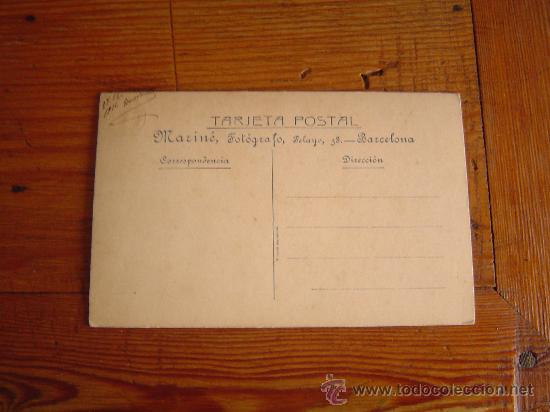 TARJETA POSTAL
Mariné, Fotógrafo, Pelayo, 38.—Barcelona
Correspondencia
Dirección
todocoleccion
www.todocoleccion.net